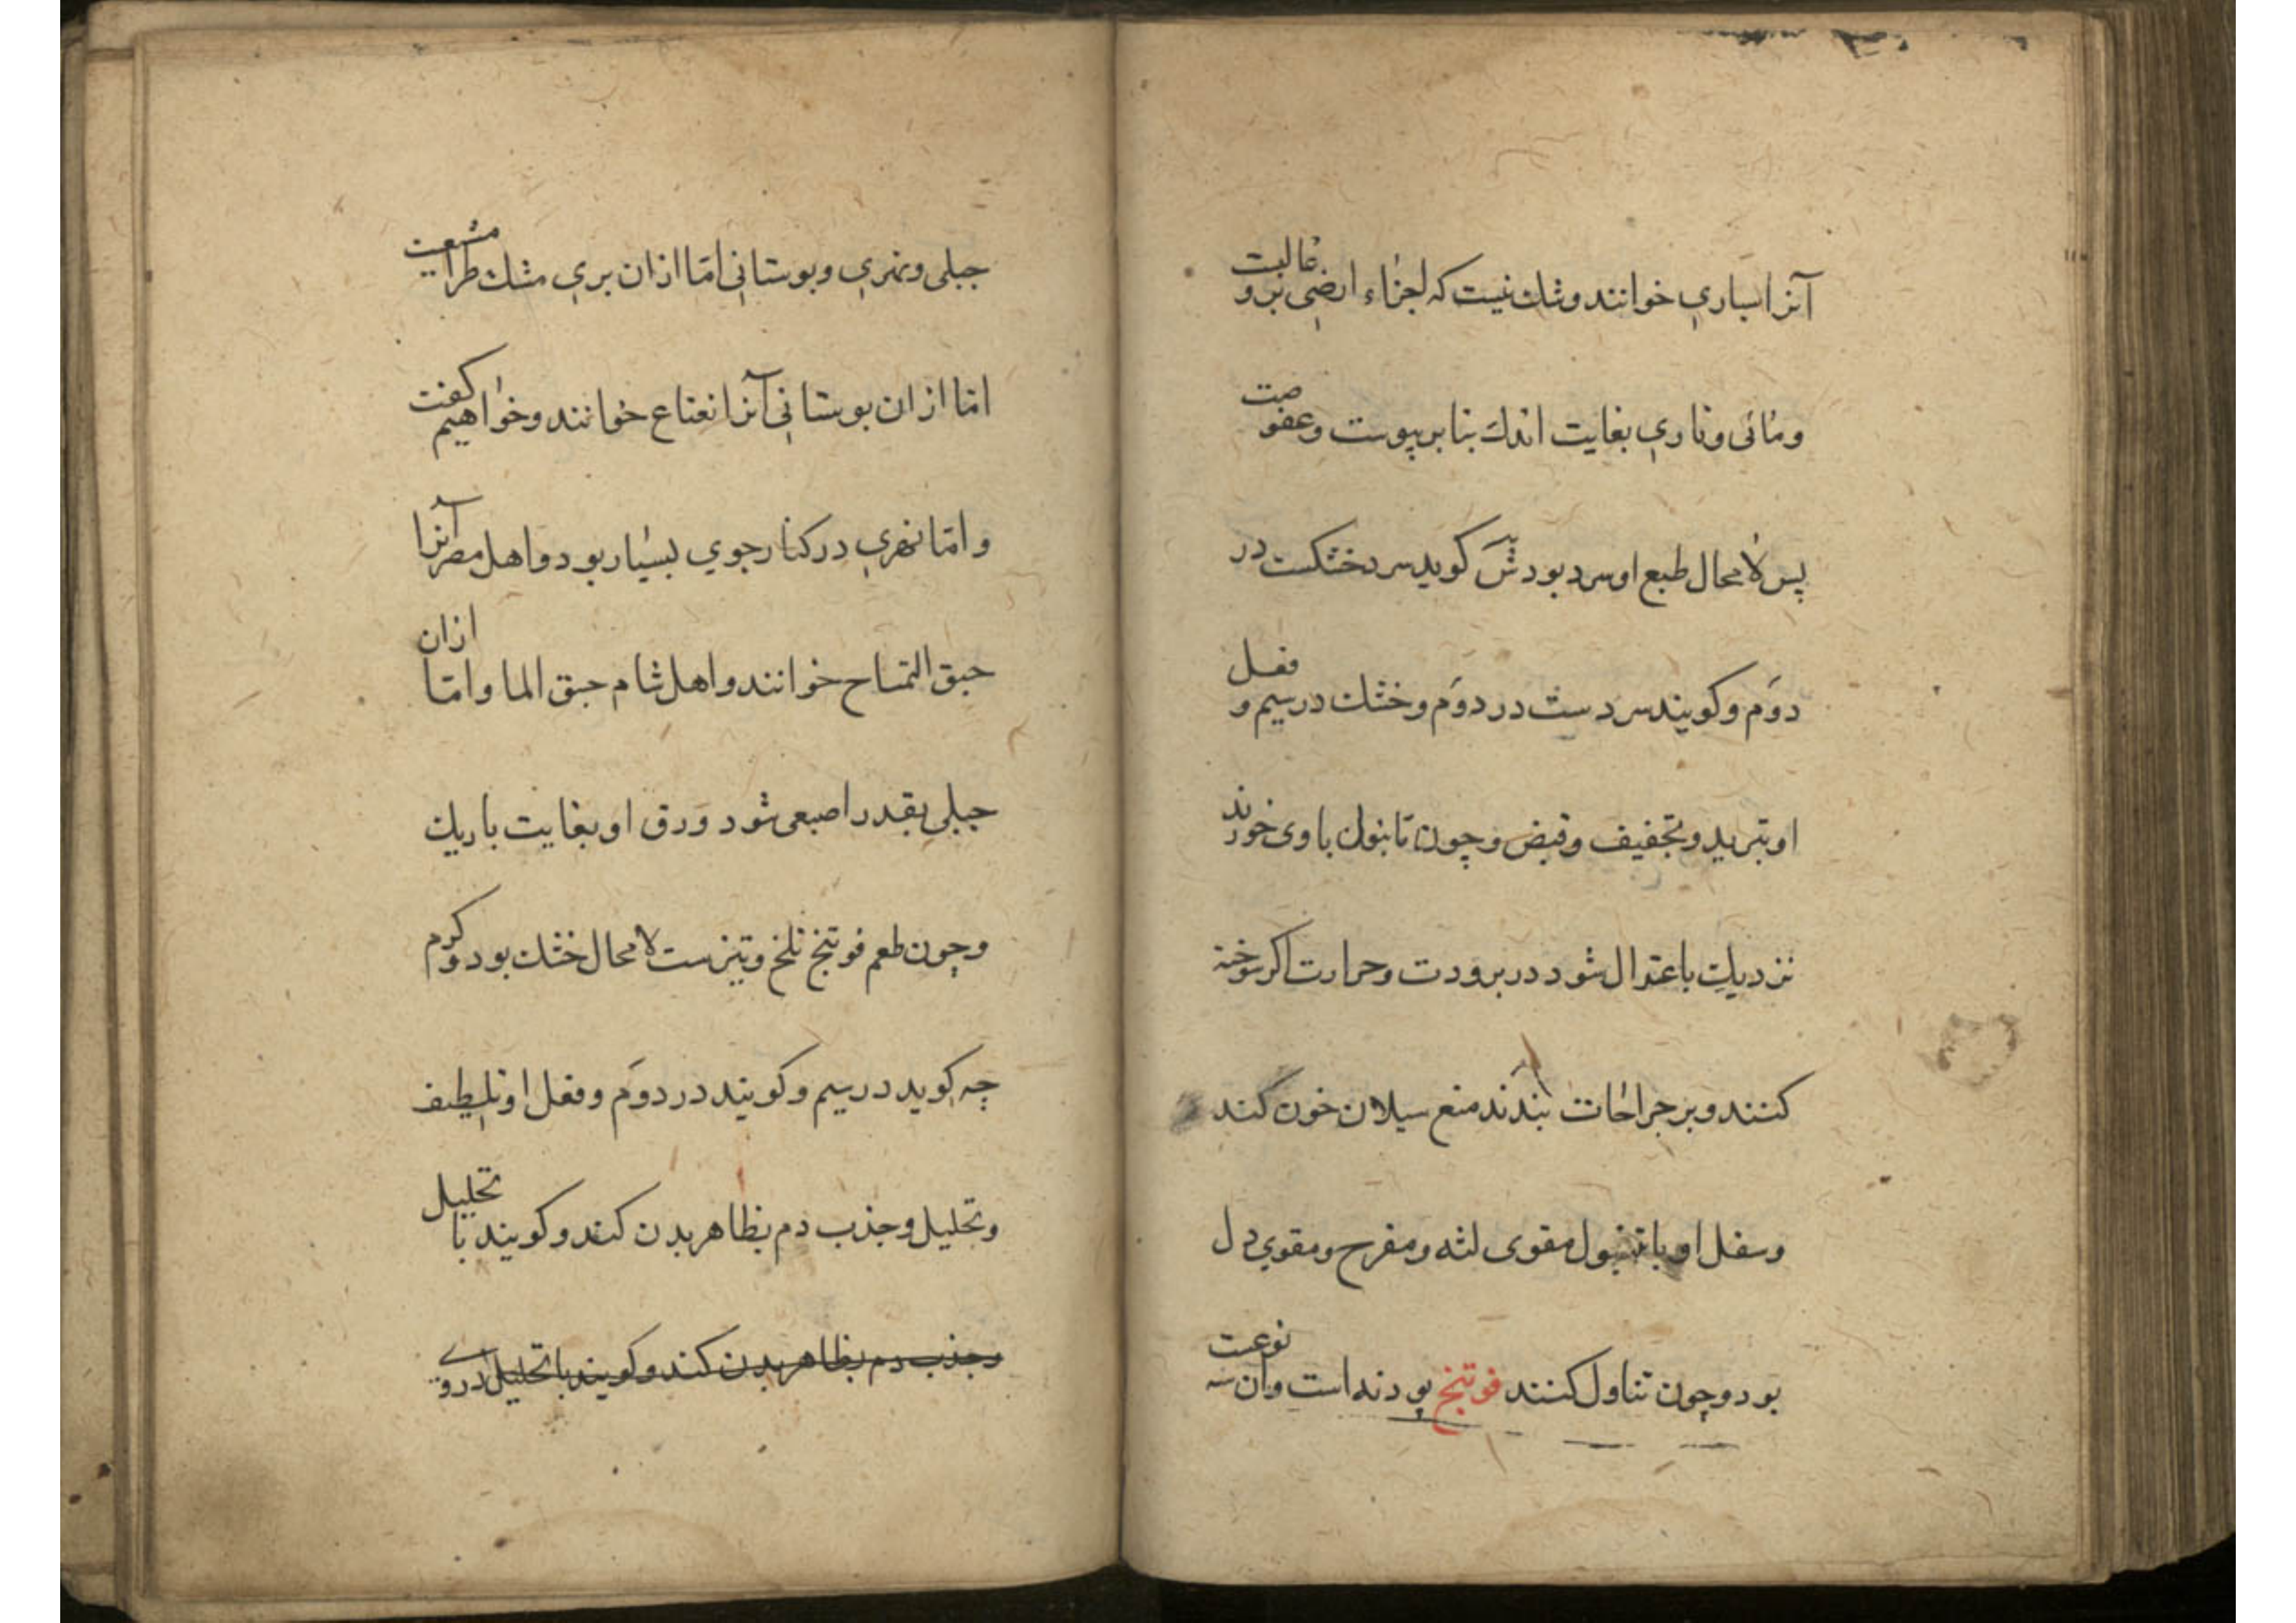 آنرا سپاری خوانند وشك نیست که اجزاء ارضی برو غالبست
ومائی وناری بغایت اندك بنا بر یبوست وعفوصت
پس لا محال طبع او سرد بود گوید سرد خشکست در
دوَم وکویند سردست در دوَم وخشك در سیم و فعل
او تبرید وتجفیف وقبض وچون تا بنول با وی خورند
نزدیك باعتدال شود در برودت وحرارت اکر سوخته
کنند وبر جراحات بندند منع سیلان خون کند
وسفل او با تنبول مقوی لثه ومفرح ومقوي دل
بود وچون تناول کنند فوتنج پودنه است وآن سه نوعست
جبلی ونهري وبوستانی امّا ازان بري مشك طرامشیعت
امّا ازان بوستانی آنرا نعناع خوانند وخواهیم کفت
وامّا نهري در کنار جوي بسیار بود واهل مصر آنرا
حبق التمساح خوانند واهل شام حبق الما وامّا ازان
جبلی بقدر اصبعی شود ورق او بغایت باریك
وچون طعم فوتنج تلخ وتیزست لا محال خشك بود وکرم
چه کوید در سیم وکویند در دوَم وفعل او تلطیف
وتحلیل وجذب دم بظاهر بدن کند وکویند با تحلیل
وجذب دم بظاهر بدن کند وکویند با تحلیل دروے